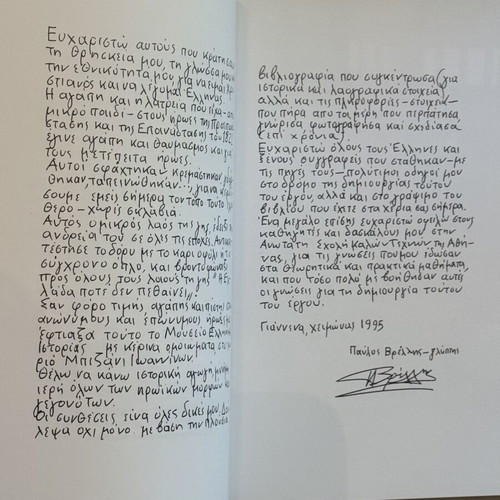 Ευχαριστώ αυτούς που κράτησαν
τη θρησκεία μου, τη γλώσσα μου
την εθνικότητά μου, για να είμαι Χρι-
στιανός και να λέγομαι Έλληνας.
Η αγάπη και η λατρεία που είχα - από
μικρό παιδί - στους ήρωες της
στασης και της Επανάστασης του 182
έγινε αγάπη και θαυμασμός και για
τους μετέπειτα ήρωες.
Αυτοί σφάχτηκαν κρεμάστηκαν
θηκαν, ταπεινώθηκαν..., για να
σουμε εμείς σήμερα τον τόπο τούτο
θερο - χωρίς σκλαβιά.
Αυτός ο μικρός λαός της γης, έδειξε
ανδρεία του σε όλες τις εποχές.
τέστησε το δόρυ με το καριοφίλι
σύγχρονο όπλο, και βροντοφώναξε
προς όλους τους λαούς της γης "Η Ελ-
λάδα ποτέ δεν πεθαίνει„
Σαν φόρο τιμής, αγάπης και πίστης
ανώνυμους και επώνυμους ήρωες
έφτιαξα τούτο το Μουσείο Ελληνικής
Ιστορίας - με κέρινα ομοιώματα στο
ριό Μπιζάνι Ιωαννίνων.
Θέλω να κάνω ιστορική αγωγή
ιερή όλων των ηρωικών μορφών
γεγονότων.
Οι συνθέσεις είναι όλες δικές μου.
λεψα όχι μόνο με βάση την πλούσια
βιβλιογραφία που συγκέντρωσα (για
ιστορικά και λαογραφικά στοιχεία)
αλλά και τις πληροφορίες - στοιχεία -
που πήρα από τα μέρη που περπάτησα,
γνώρισα, φωτογράφησα και σχεδίασα
(επί χρόνια).
Ευχαριστώ όλους τους Έλληνες και
ξένους συγγραφείς που στάθηκαν - με
τις πηγές τους - πολύτιμοι οδηγοί μου
στο δρόμο της δημιουργίας τούτου
του έργου, αλλά και στο γράψιμο του
βιβλίου που έχετε στα χέρια σας σήμερα.
Ένα μεγάλο επίσης ευχαριστώ οφείλω στους
καθηγητές και δασκάλους μου στην
Ανωτάτη Σχολή Καλών Τεχνών της Αθή-
νας, για τις γνώσεις που μου έδωσαν
στα θεωρητικά και πρακτικά μαθήματα,
και που τόσο πολύ με βοήθησαν αυτές
οι γνώσεις για τη δημιουργία τούτου
του έργου.
Γιάννενα, χειμώνας 1995
Παύλος Βρέλλης - γλύπτης